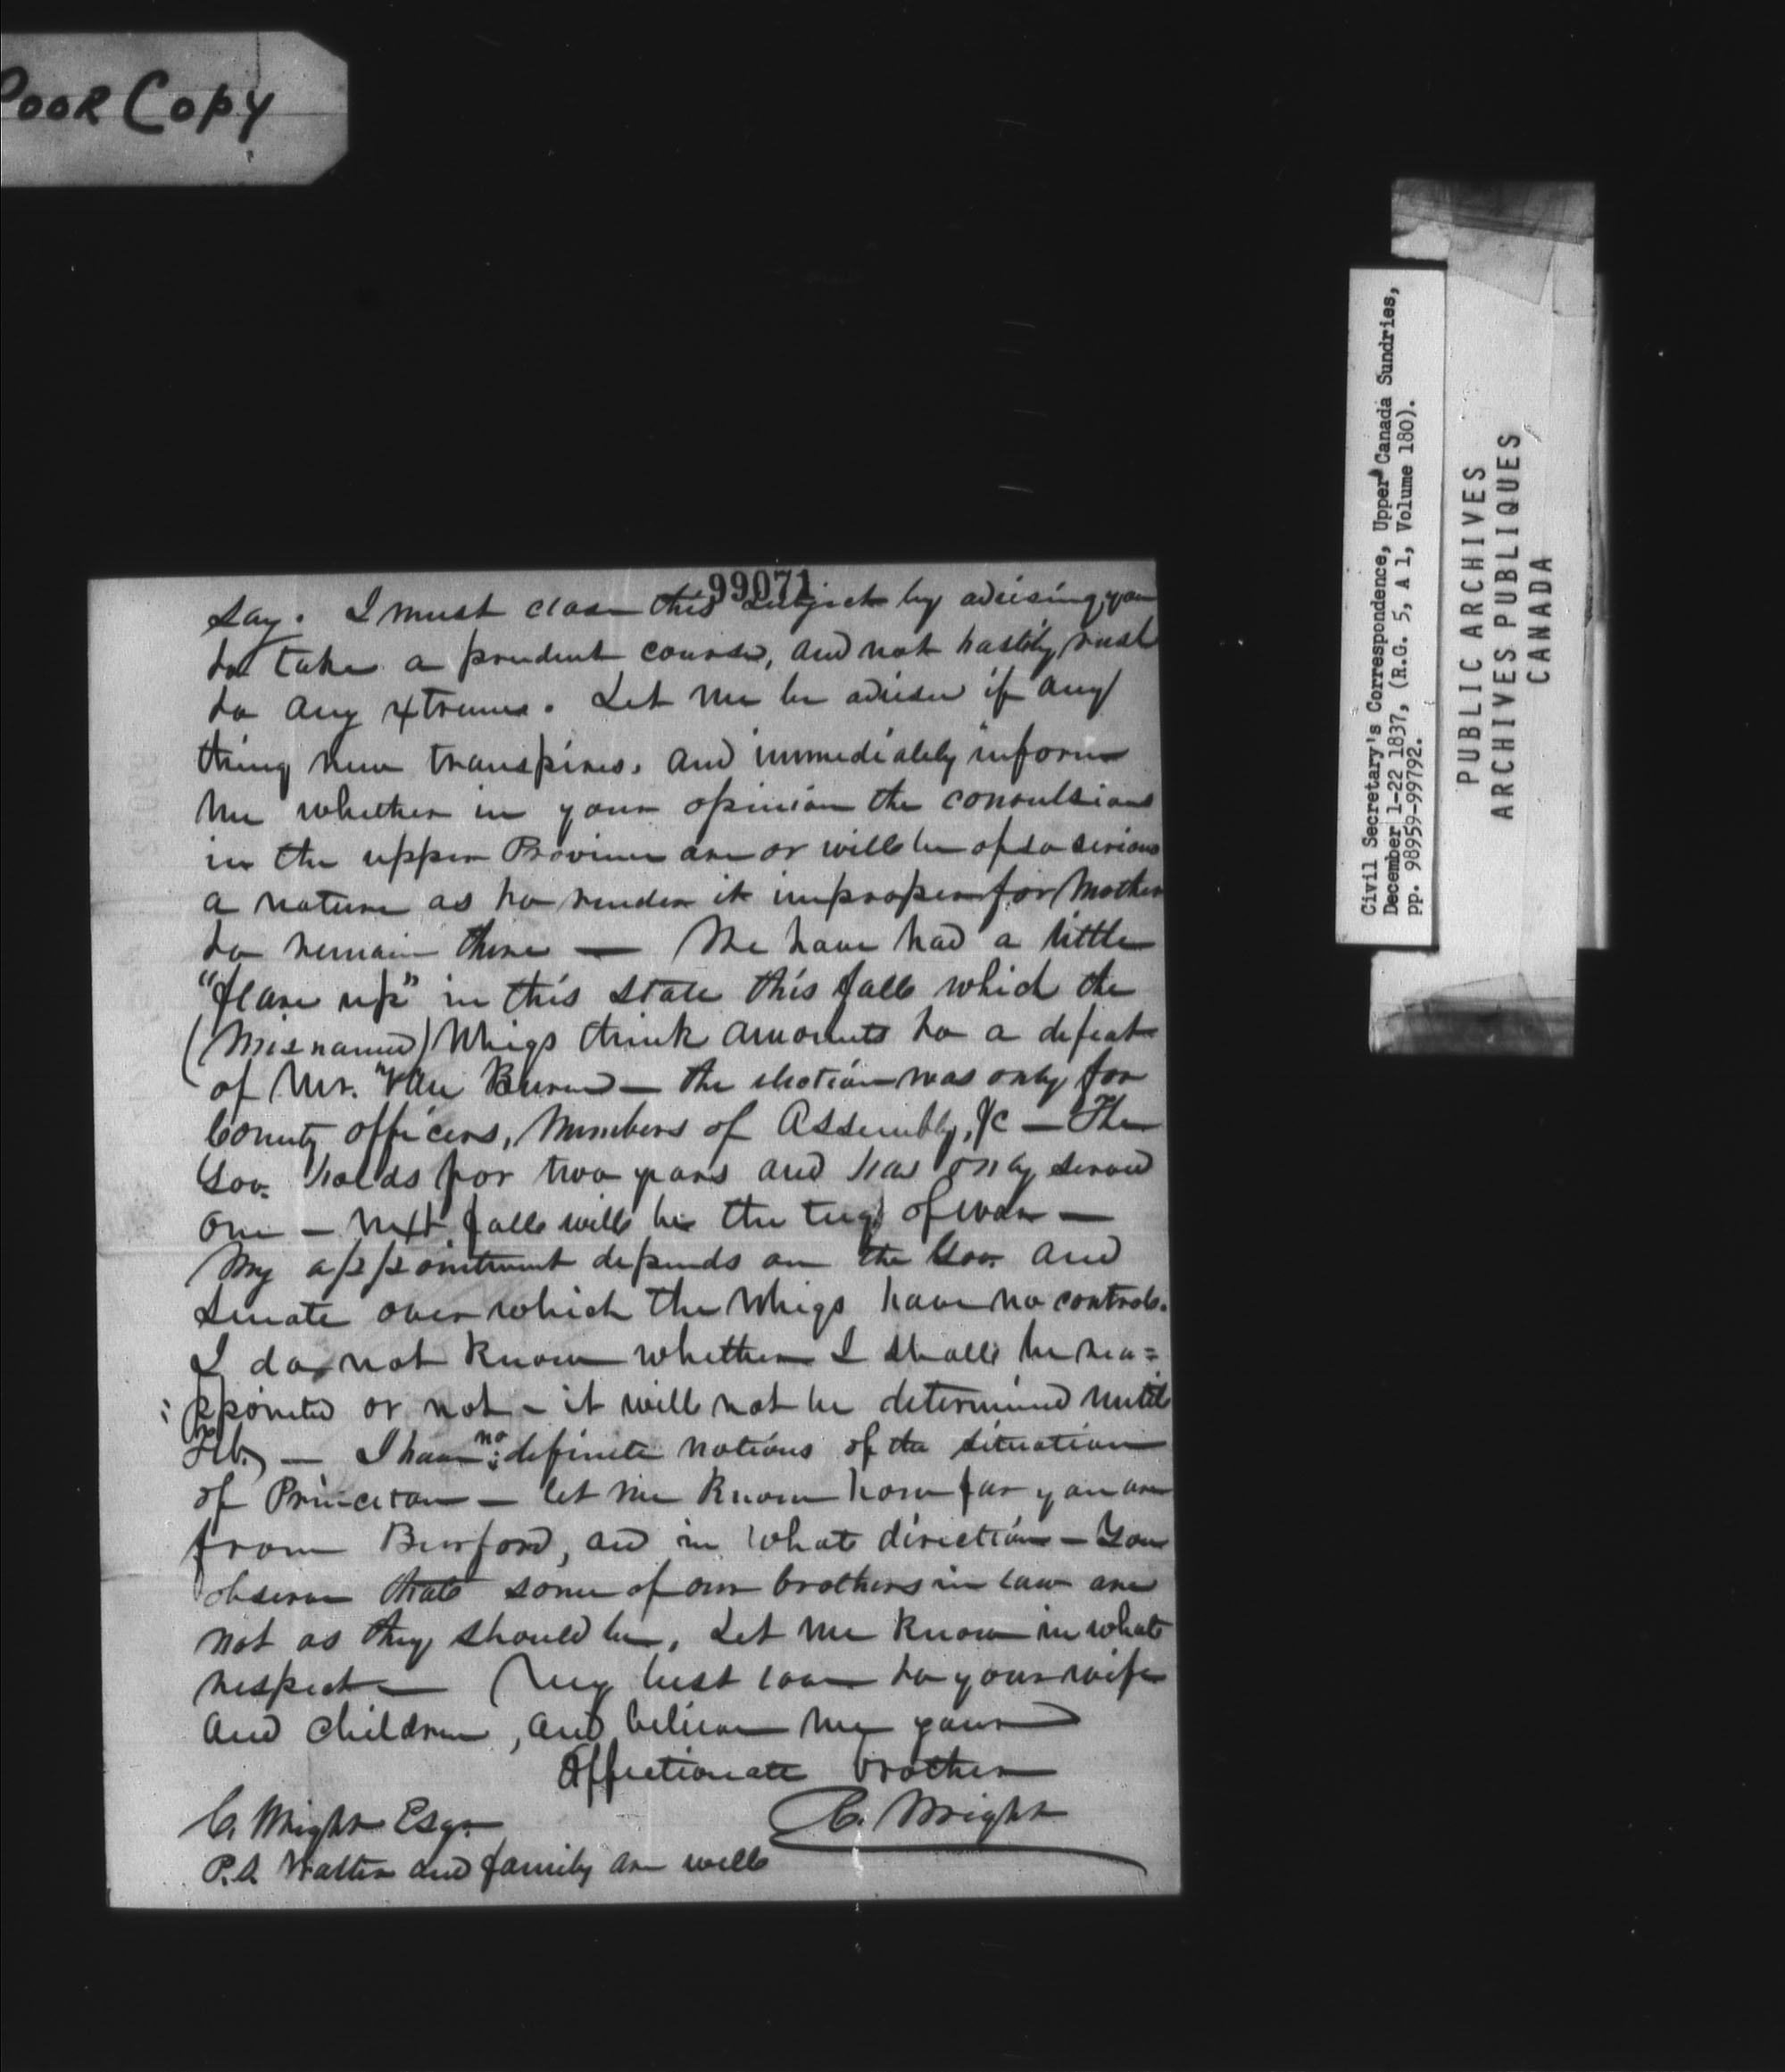 POOR COPY
99071
say. I must close this subject by advising you
to take a prudent course, and not hastily rush
to any xtremes. Let me be advised if any
thing new transpires, and immediately inform
me whether in your opinion the convulsions
in the upper Province are or will be of so serious
a nature as to render it improper for Mother
to remain there — We have had a little
"flare up" in this State this fall which the
(Misnamed) Whigs think amounts to a defeat
of Mr. Van Buren — the election was only for
County officers, Members of Assembly, &c — The
Gov. holds for two years and has only served
one — next fall will be the tug of war —
My appointment depends on the Gov. and
Senate over which the Whigs have no control.
I do not know whether I shall be rea=
:ppointed or not - it will not be determined until
Feb. — I have no definite notions of the situation
of Princeton — let me know how far you are
from Burford, and in what direction — You
observe that some of our brothers in law are
not as they should be, Let me know in what
respect — My best love to your wife
and children, and believe me your
Affectionate brother
C. Wright
C. Wright Esqr.
P.S. Walter and family are well
Civil Secretary's Correspondence, Upper Canada Sundries,
December 1-22 1837, (R.G. 5, A 1, Volume 180).
pp. 98959-99792.
PUBLIC ARCHIVES
ARCHIVES PUBLIQUES
CANADA